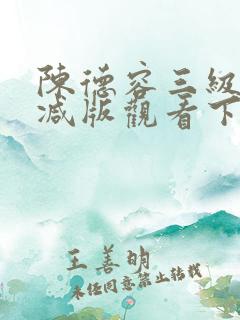 陳德容三級
減版觀看下
王善明
未经同意禁止转载